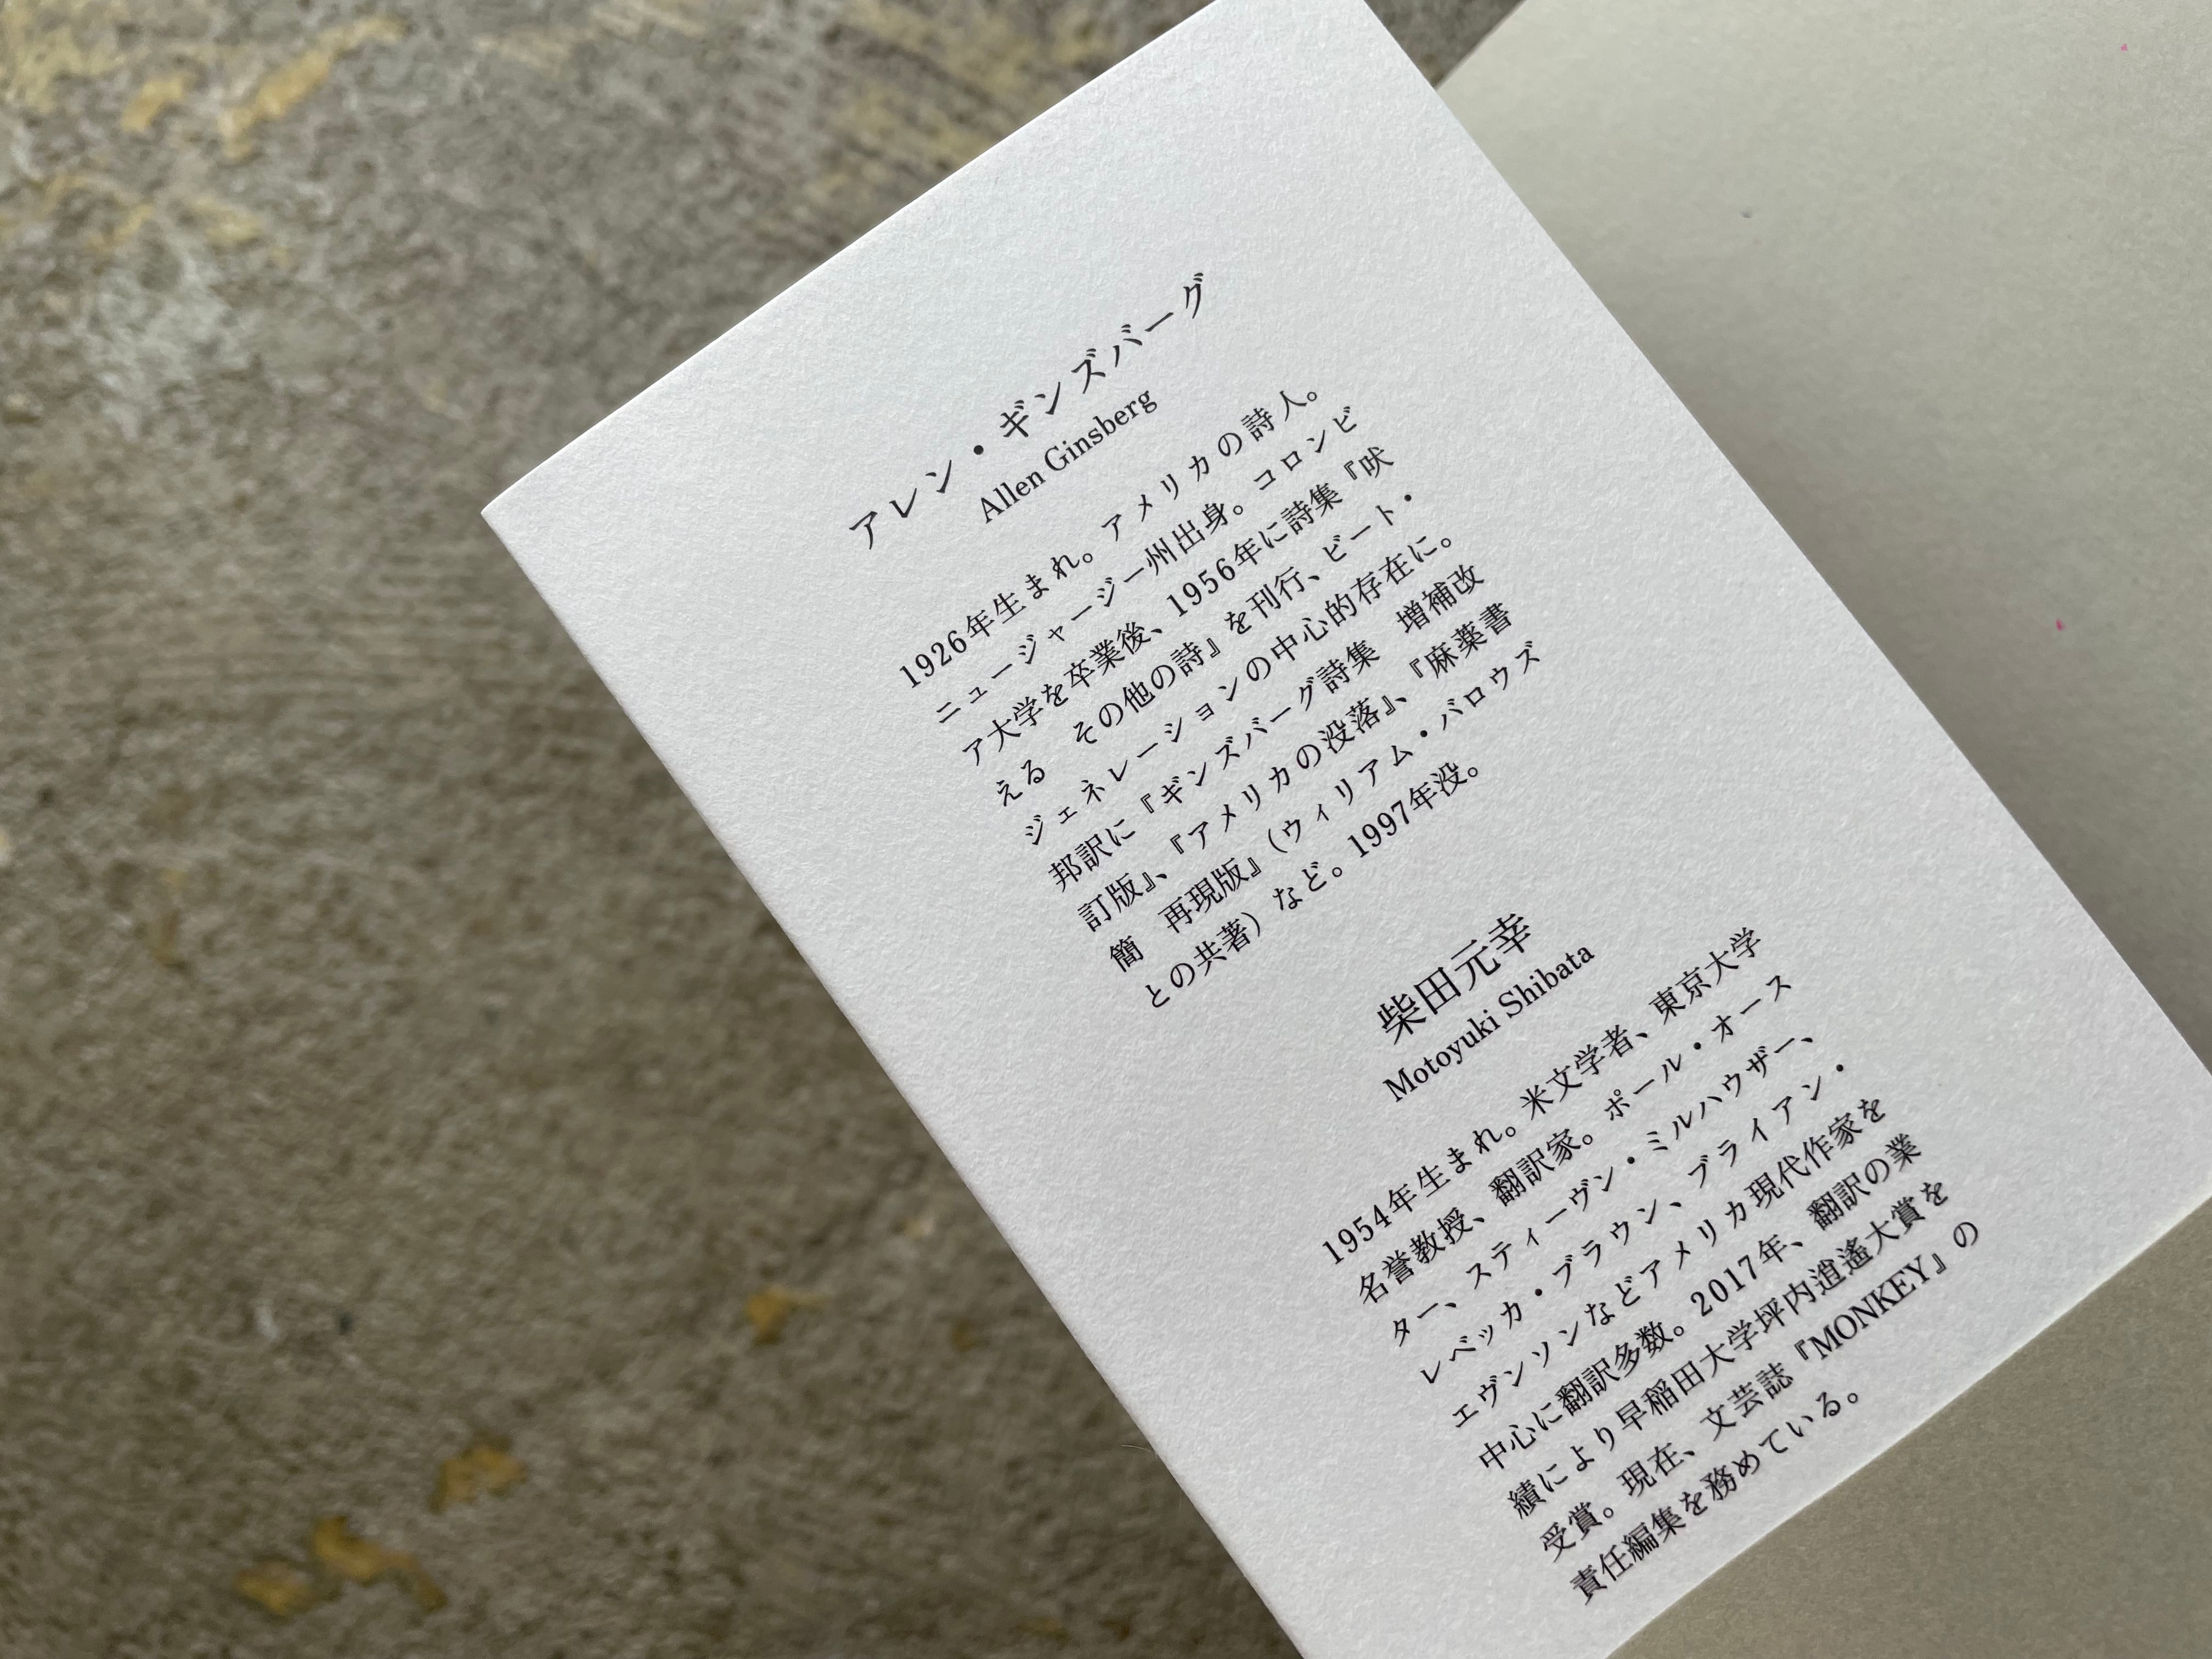 アレン・ギンズバーグ
Allen Ginsberg
1926年生まれ。アメリカの詩人。
ニュージャージー州出身。コロンビ
ア大学を卒業後、1956年に詩集『吠
える　その他の詩』を刊行、ビート・
ジェネレーションの中心的存在に。
邦訳に『ギンズバーグ詩集　増補改
訂版』、『アメリカの没落』、『麻薬書
簡　再現版』（ウィリアム・バロウズ
との共著）など。1997年没。
柴田元幸
Motoyuki Shibata
1954年生まれ。米文学者、東京大学
名誉教授、翻訳家。ポール・オース
ター、スティーヴン・ミルハウザー、
レベッカ・ブラウン、ブライアン・
エヴンソンなどアメリカ現代作家を
中心に翻訳多数。2017年、翻訳の業
績により早稲田大学坪内逍遙大賞を
受賞。現在、文芸誌『MONKEY』の
責任編集を務めている。